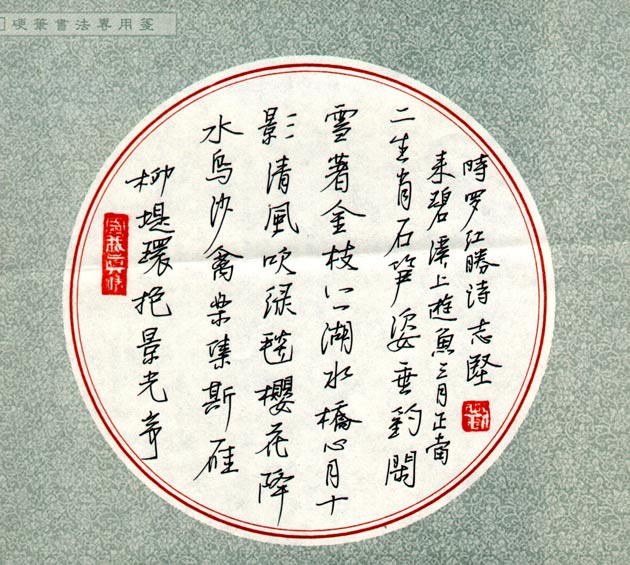 柳堤環抱景光奇
水鳥沙禽樂集斯桂
影清風吹绿毯櫻花降
雪著金枝八一湖水橋心月十
二生肖石笋姿垂釣閑
来碧溪上遊魚三月正當
時 罗红勝诗志堅
硬筆書法專用箋